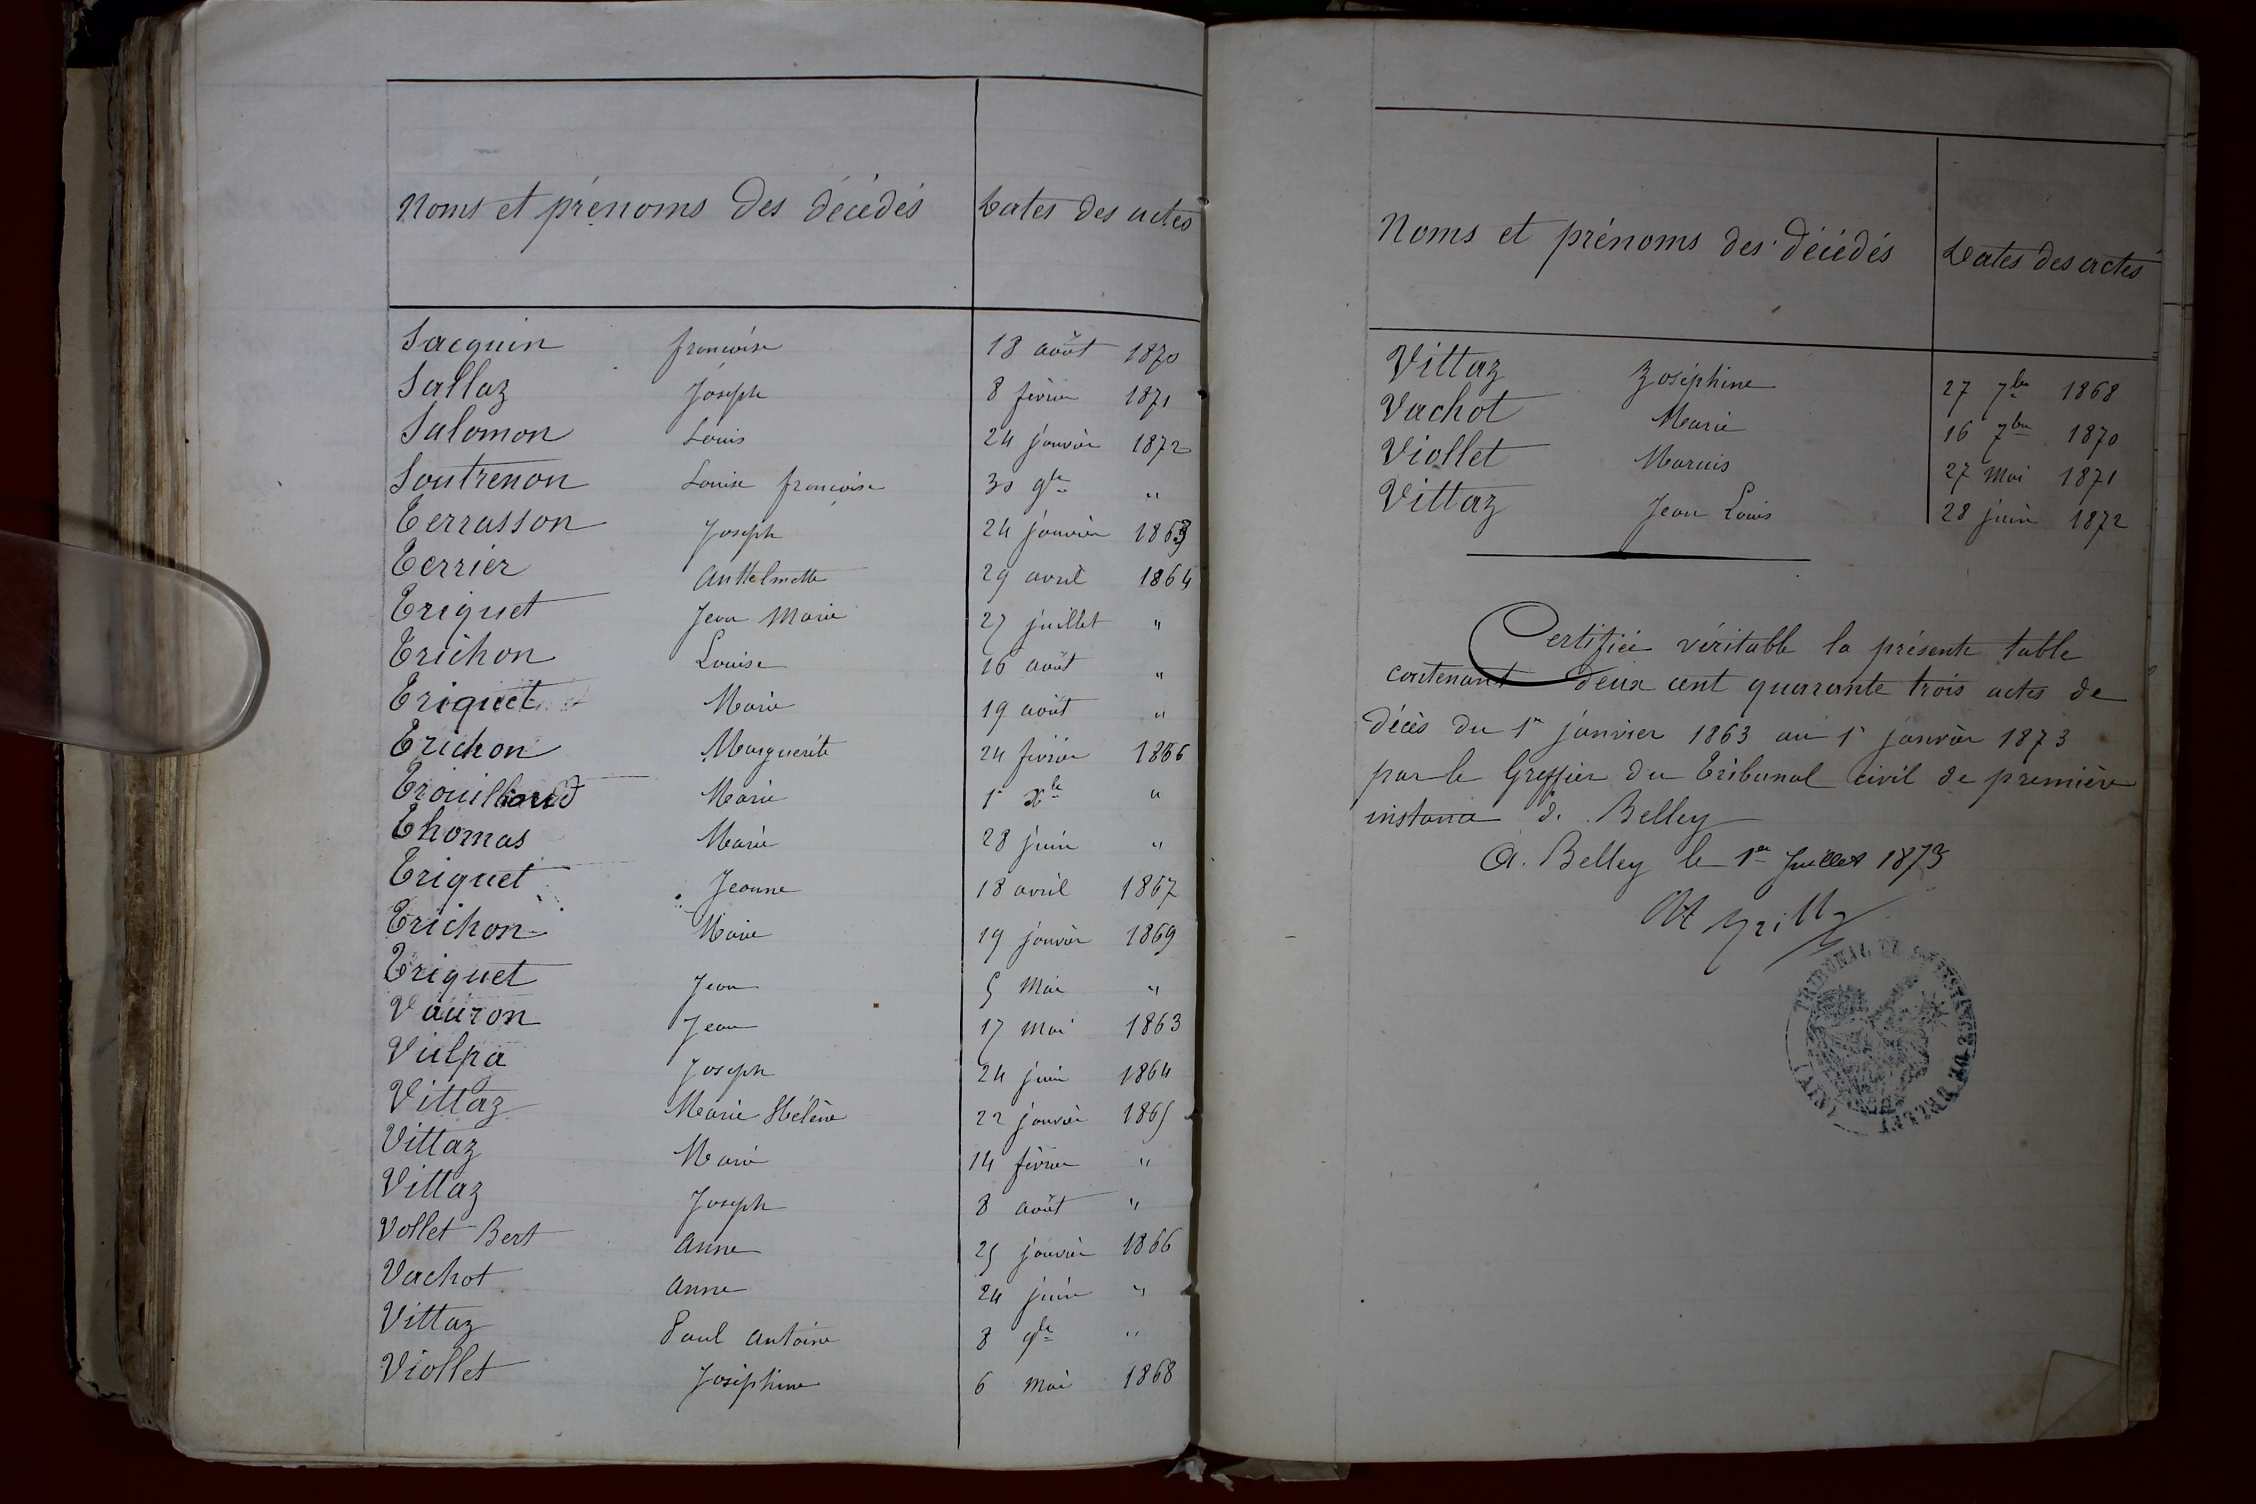 Noms et prénoms des décédés Dates des actes
Sacquin françoise 18 août 1870
Sallaz Joseph 8 février 1871
Salomon Louis 24 janvier 1872
Soutrenon Louise françoise 30 9bre "
Terrasson Joseph 24 janvier 1863
Terrier Anthelmette 29 avril 1864
Triquet Jean Marie 27 juillet "
Trichon Louise 16 août "
Triquet Marie 19 août "
Trichon Marguerite 24 février 1866
Trouilloud Marie 1er Xbre "
Thomas Marie 28 juin "
Triquet Jeanne 18 avril 1867
Trichon Marie 19 janvier 1869
Triquet Jean 5 Mai "
Vauron Jean 17 Mai 1863
Vulpa Joseph 24 juin 1864
Vittaz Marie Hélène 22 janvier 1865
Vittaz Marie 14 février "
Vittaz Joseph 8 août "
Vollet Bert Anne 25 janvier 1866
Vachot Anne 24 juin "
Vittaz Paul Antoine 8 9bre "
Viollet Joséphine 6 Mai 1868
Noms et prénoms des décédés Dates des actes
Vittaz Joséphine 27 7bre 1868
Vachot Marie 16 7bre 1870
Viollet Marius 27 Mai 1871
Vittaz Jean Louis 28 juin 1872
Certifiée véritable la présente table
contenant deux cent quarante trois actes de
décès du 1er janvier 1863 au 1er janvier 1873
par le Greffier du Tribunal civil de première
instance de Belley
A. Belley le 1er Juillet 1873
TRIBUNAL DE 1ère INSTANCE DE BELLEY (AIN)